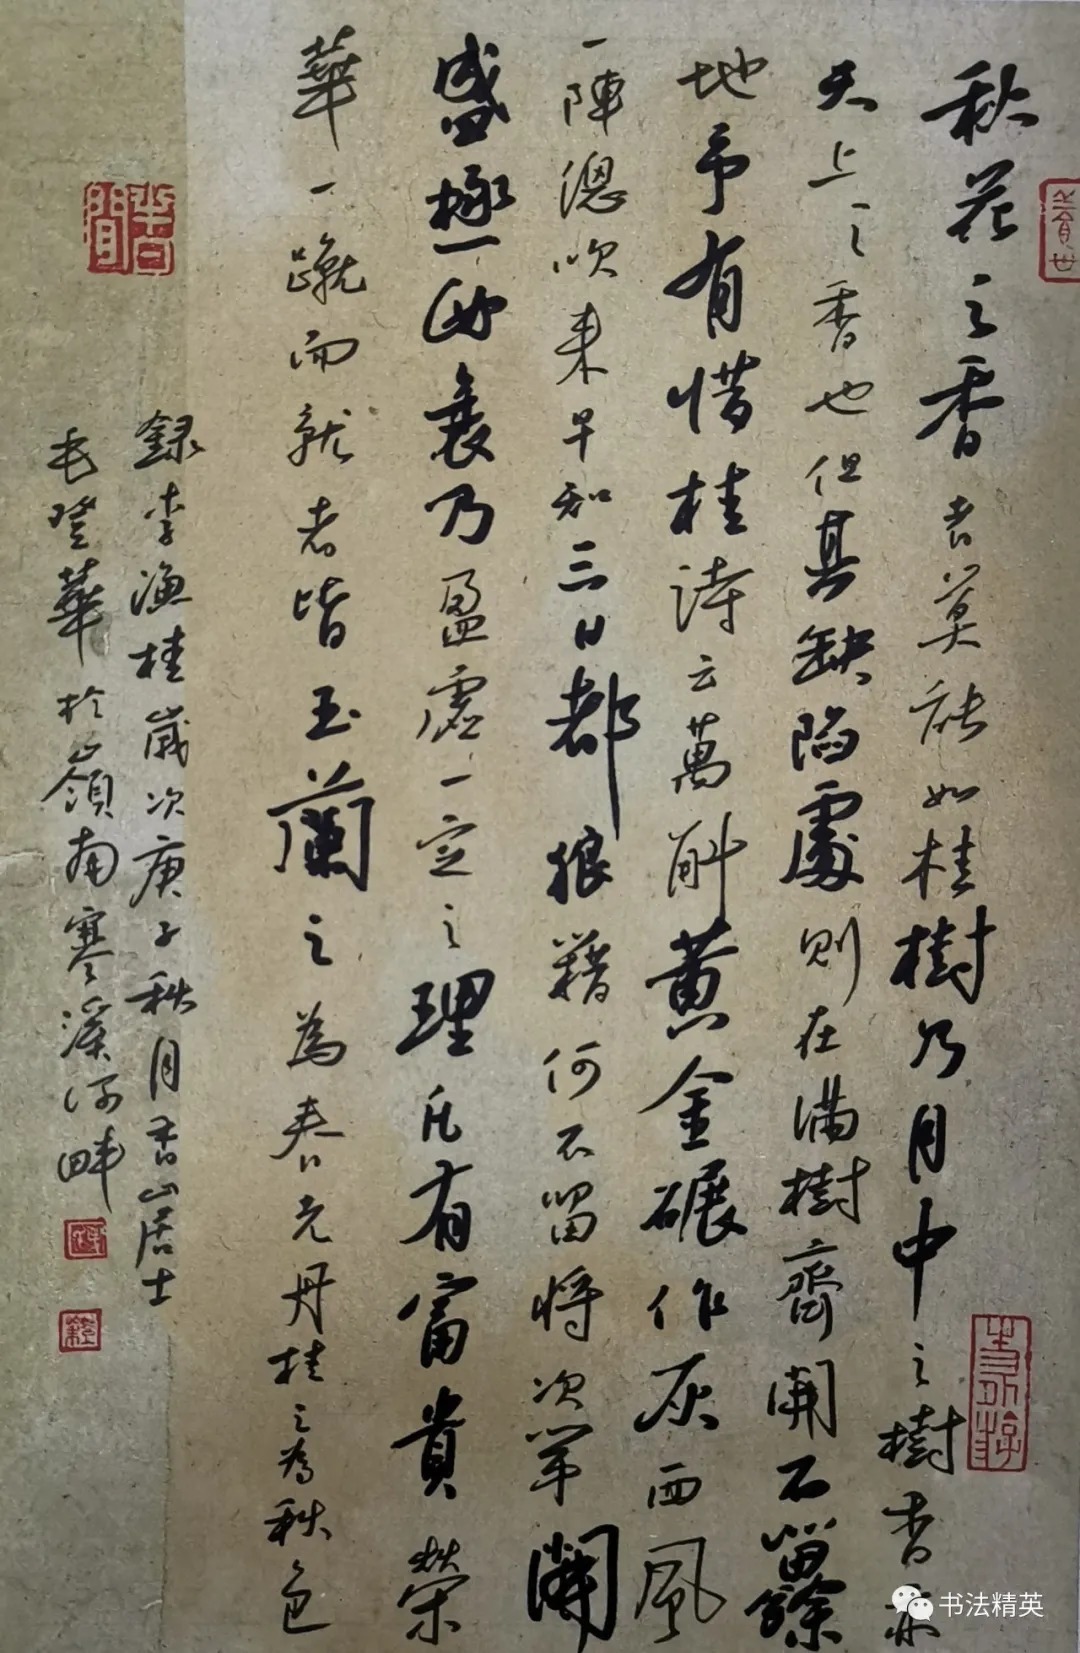 秋花之香者莫能如桂樹乃月中之樹香亦
天上之香也但其缺陷處則在滿樹齊開不留餘
地予有惜桂詩云萬斛黃金碾作灰西風
一陣總吹来早知三日都狼籍何不留將次第開
盛極必衰乃盈虛一定之理凡有富貴榮
華一蹴而就者皆玉蘭之為春光丹桂之為秋色
錄李漁桂歲次庚子秋月香山居士
毛登華於嶺南寒溪河畔
书法精英